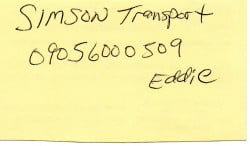 SIMSON Transport
09056000509
Eddie